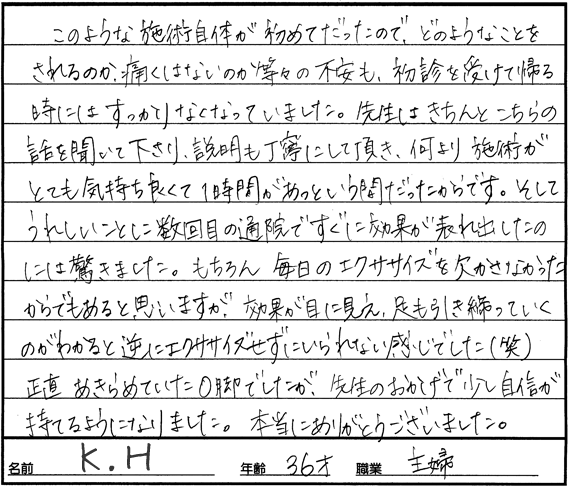 このような施術自体が初めてだったので、どのようなことを
されるのか、痛くはないのか等々の不安も、初診を受けて帰る
時にはすっかりなくなっていました。先生はきちんとこちらの
話を聞いて下さり、説明も丁寧にして頂き、何より施術が
とても気持ち良くて1時間があっという間だったからです。そして
うれしいことに数回目の通院ですぐに効果が表れ出したの
には驚きました。もちろん毎日のエクササイズを欠かさなかった
からでもあると思いますが、効果が目に見え、足も引き締っていく
のがわかると逆にエクササイズせずにいられない感じでした(笑)
正直あきらめていたO脚でしたが、先生のおかげで少し自信が
持てるようになりました。本当にありがとうございました。
名前 K.H 年齢 36才 職業 主婦